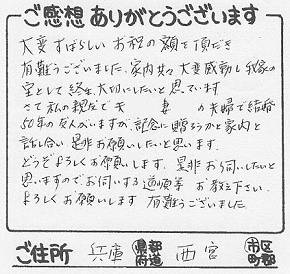 ご感想ありがとうございます
大変すばらしいお祝の額を頂だき
有難うございました。家内共々大変感動し我家の
宝として終生大切にしたいと思っています
さて私の親友で夫 妻 の夫婦で結婚
50年の友人がいますが記念に贈ろうかと家内と
話し合い是非お願いしたいと思います。
どうぞよろしくお願いします。是非お伺いしたいと
思いますのでお伺いする道順等お教え下さい。
よろしくお願いします 有難うございました
ご住所 兵庫 都道府県 西宮 市区町郡